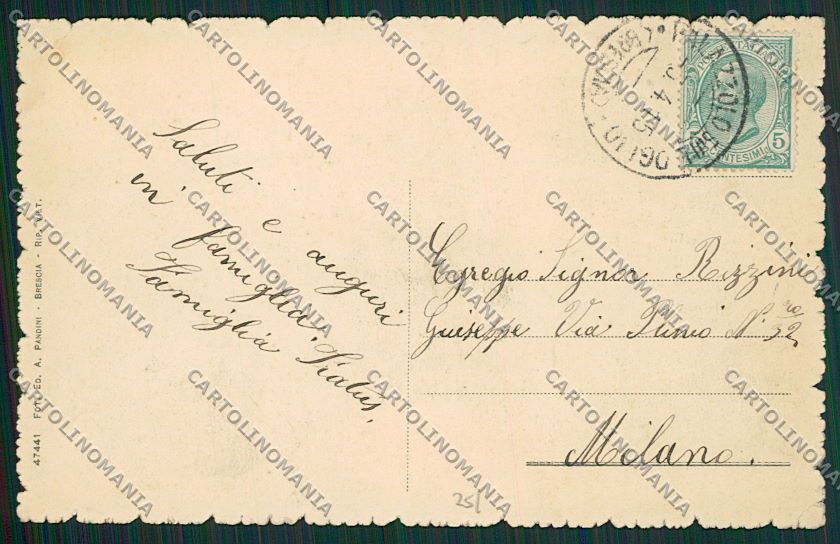 Saluti e auguri
in famiglia
Famiglia
Egregio Signor Rizzini
Giuseppe Via Plinio N.ro 32
Milano.
POSTE ITALIANE
5 CENTESIMI 5
PALAZZOLO SULL'OGLIO
47441 FOT. ED. A. PANDINI - BRESCIA - RIP. VIET.
25/
CARTOLINOMANIA